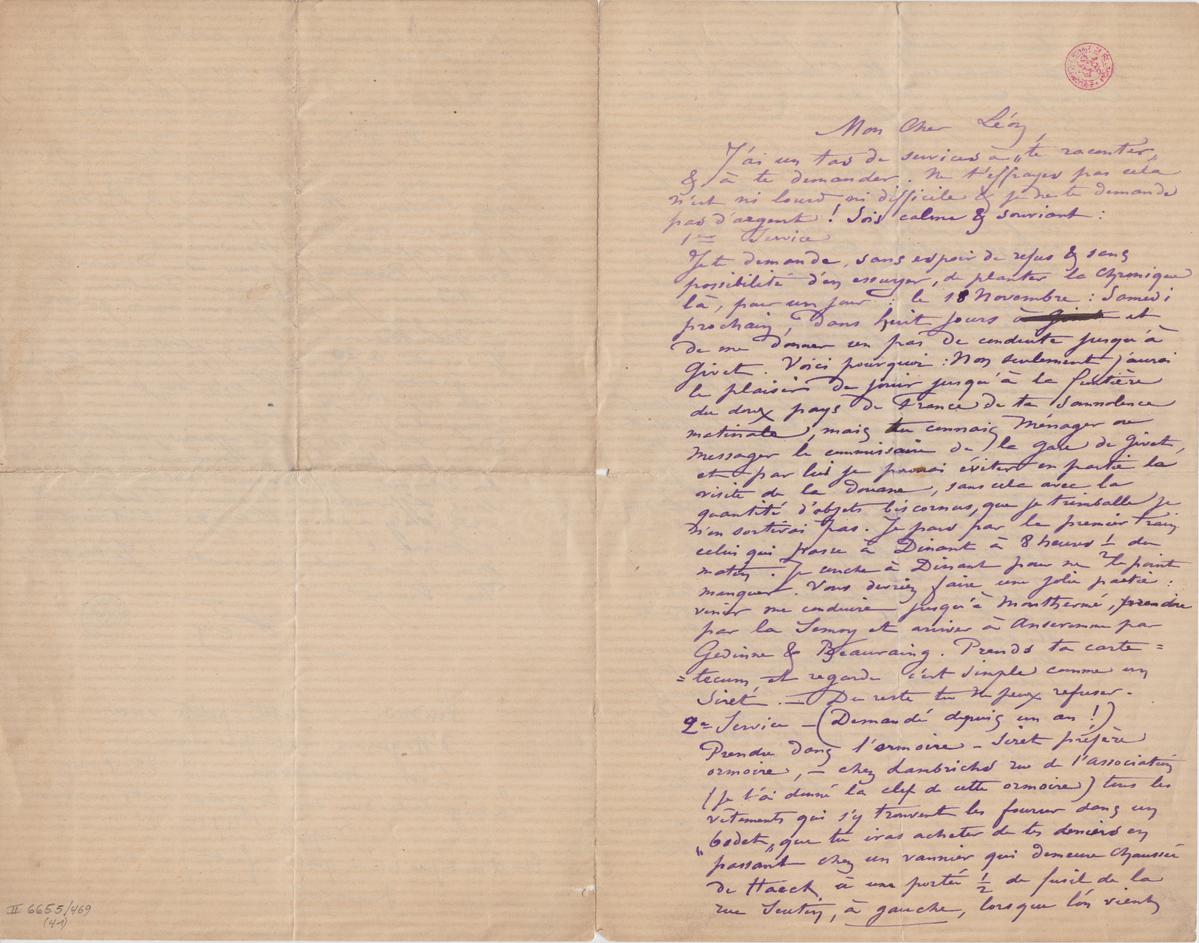 Mon Cher Léon,
J'ai un tas de services à „te raconter„
& à te demander. Ne t'effrayes pas cela
n'est ni lourd ni difficile & je ne te demande
pas d'argent ! Sois calme & souriant :
1er Service
Je te demande, sans espoir de refus & sans
possibilité d'en essuyer, de planter la chronique
là, pour un jour : le 18 Novembre : Samedi
prochain, dans huit jours et
de me donner un pas de conduite jusqu'à
Givet. Voici pourquoi : Non seulement j'aurai
le plaisir de jouir jusqu'à la frontière
du doux pays de France de ta somnolence
matinale, mais tu connais Ménager ou
Messager le commissaire de la gare de Givet,
et par lui je pourrai éviter en partie la
visite de la Douane, sans cela avec la
quantité d'objets biscornus, que je trimballe je
n'en sortirai pas. Je pars par le premier train
celui qui passe à Dinant à 8 heures ½ du
matin. Je couche à Dinant pour ne le point
manquer. Vous devriez faire une jolie partie :
venir me conduire jusqu'à Monthermé, prendre
par la Semoy et arriver à Anseremme par
Gedinne & Beauraing. Prends ta carte =
= tecum, et regarde c'est simple comme un
Siret. — Du reste tu ne peux refuser.
2e Service — (Demandé depuis un an !)
Prendre dans l'ormoire — Siret préfère
ormoire, — chez Lambrichs rue de l'association
(je t'ai donné la clef de cette ormoire) tous les
vêtements qui s'y trouvent les fourrer dans un
„bodet„ que tu iras acheter de tes deniers en
passant chez un vannier qui demeure Chaussée
de Haecht, à une portée ½ de fusil de la
rue Seutin, à gauche, lorsque l'on vient
II 6655/469
(41)